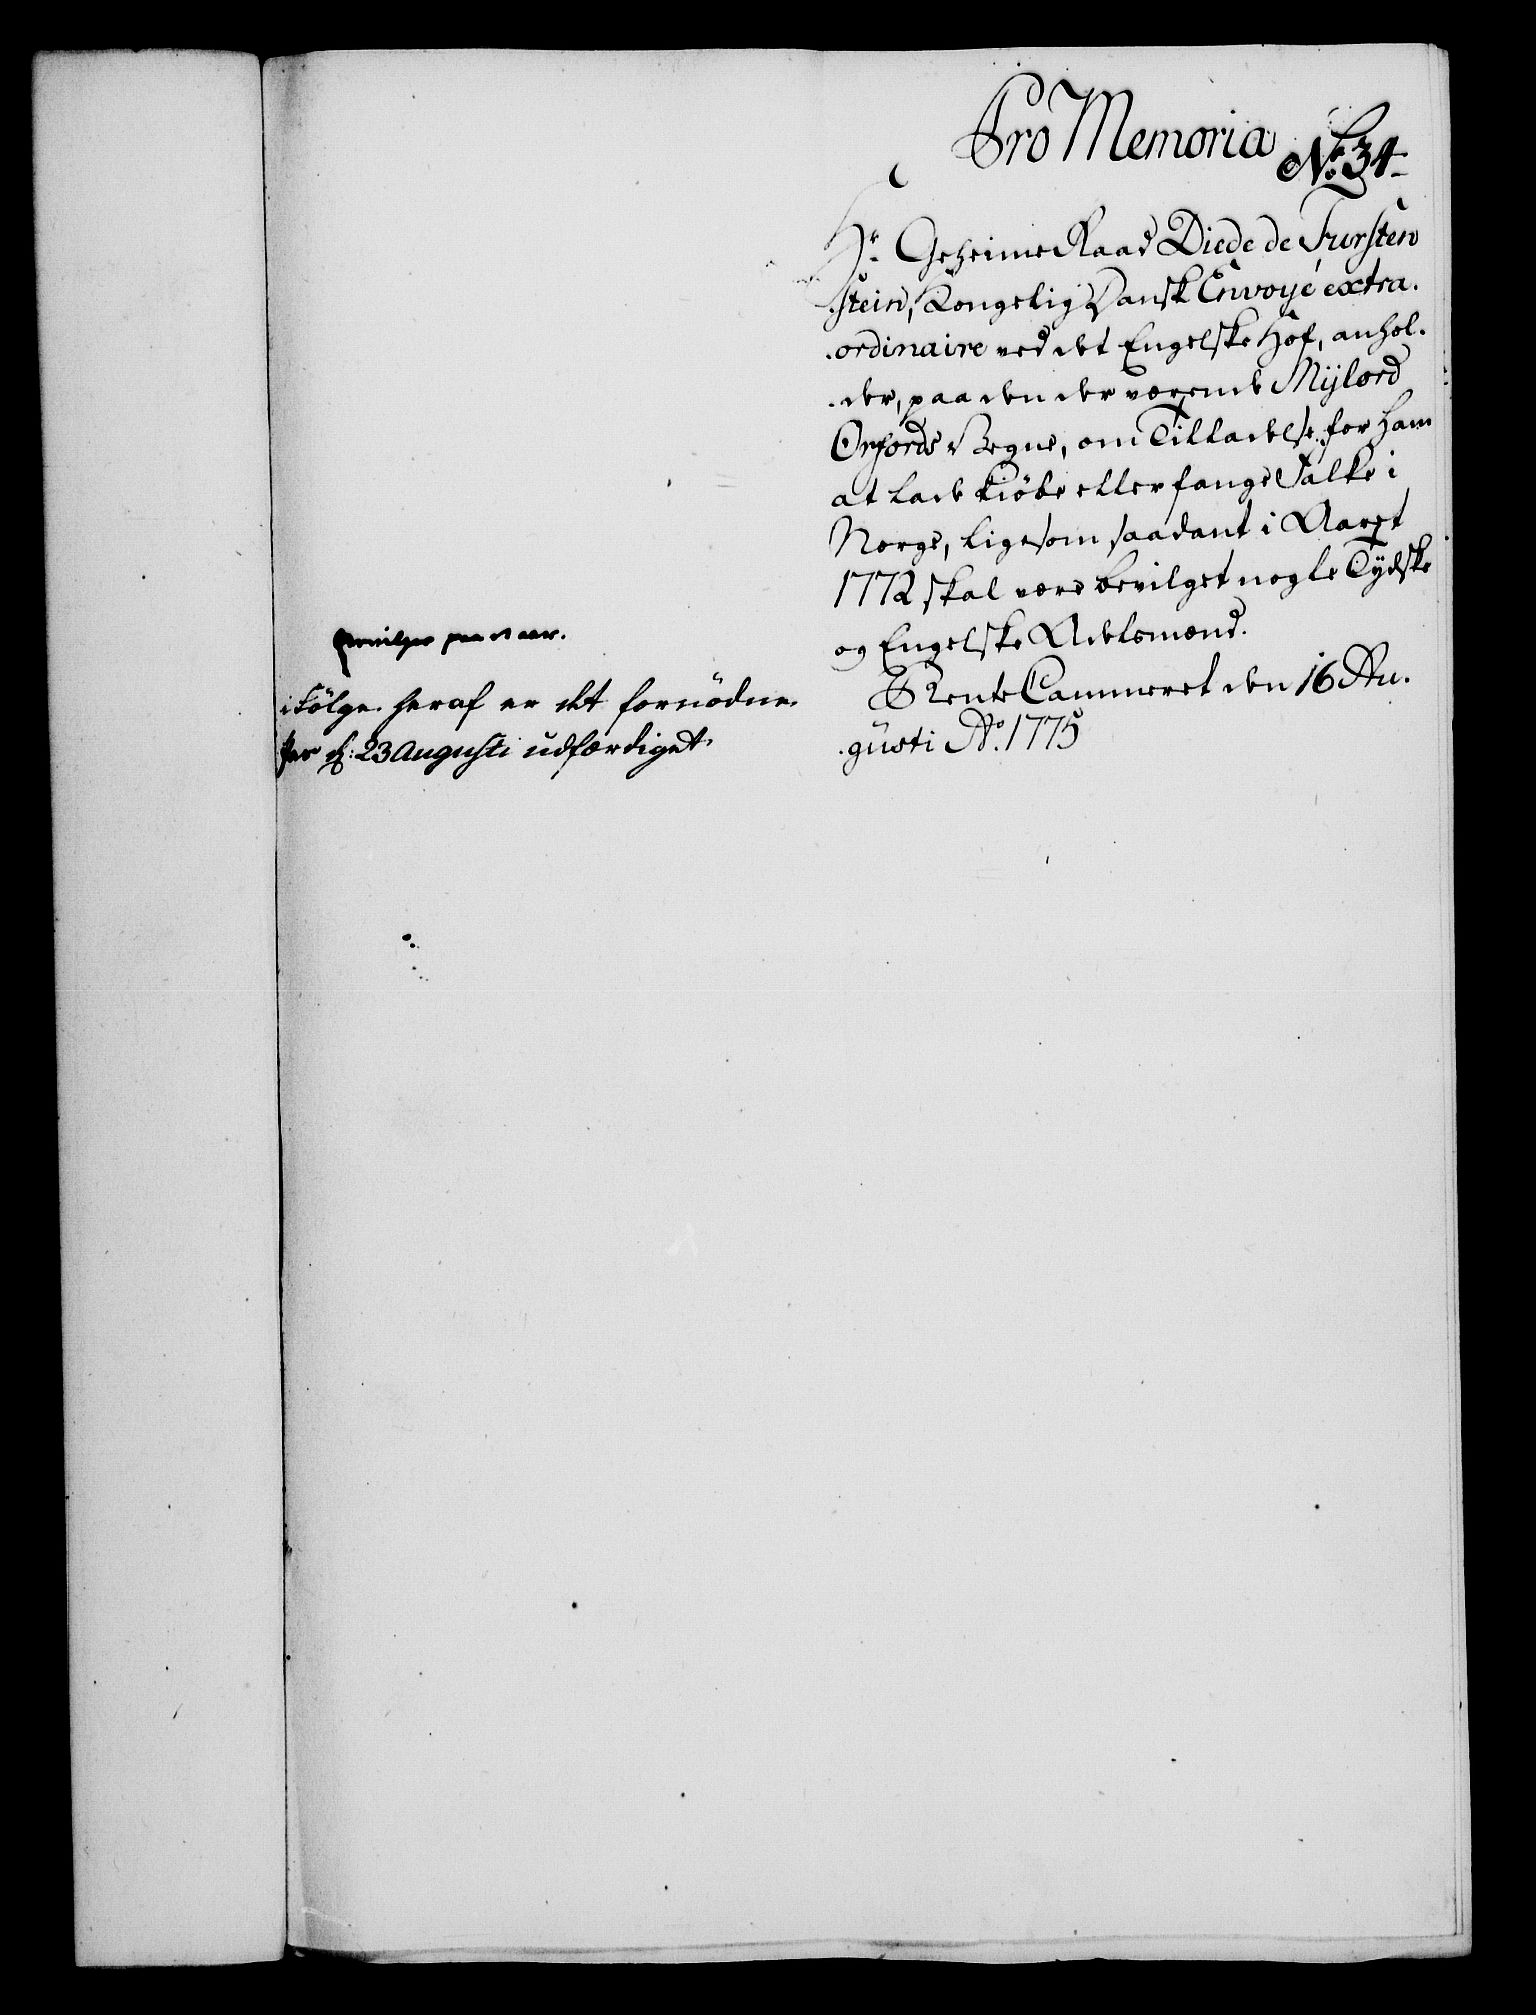 Pro Memoria
No. 34.
Hr. Geheime Raad Diede de Fursten
stein, Kongelig Dansk Envoyé extra.
.ordinaire ved det Engelske Hof, anhol.
.der, paa den der værende Mÿlord
Orfords Vegne, om Tilladelse for ham
at lade kiøbe eller fange Falke i
Norge, ligesom saadant i Aaret
1772 skal være bevilget nogle Tÿdske
og Engelske Adelsmænd.
RenteCammeret den 16 Au.
.gusti Ao. 1775
bevilges paa et aar.
i Følge heraf er det fornødne
d: 23 Augusti udfærdiget.